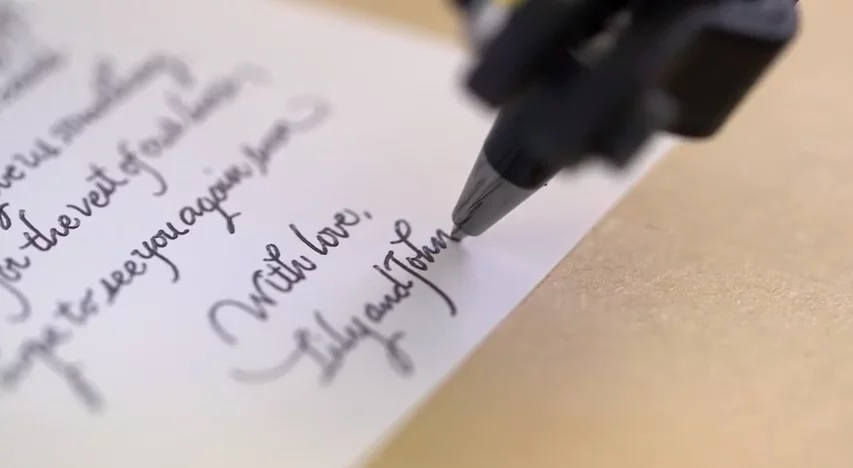 us something
for the rest of our lives,
hope to see you again soon
With love,
Lily and John